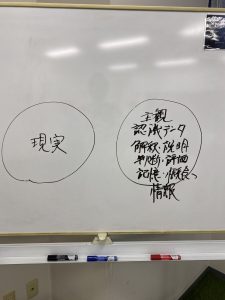 現実
主観
認識データ
解釈・説明
判断・評価
記憶・概念、
情報